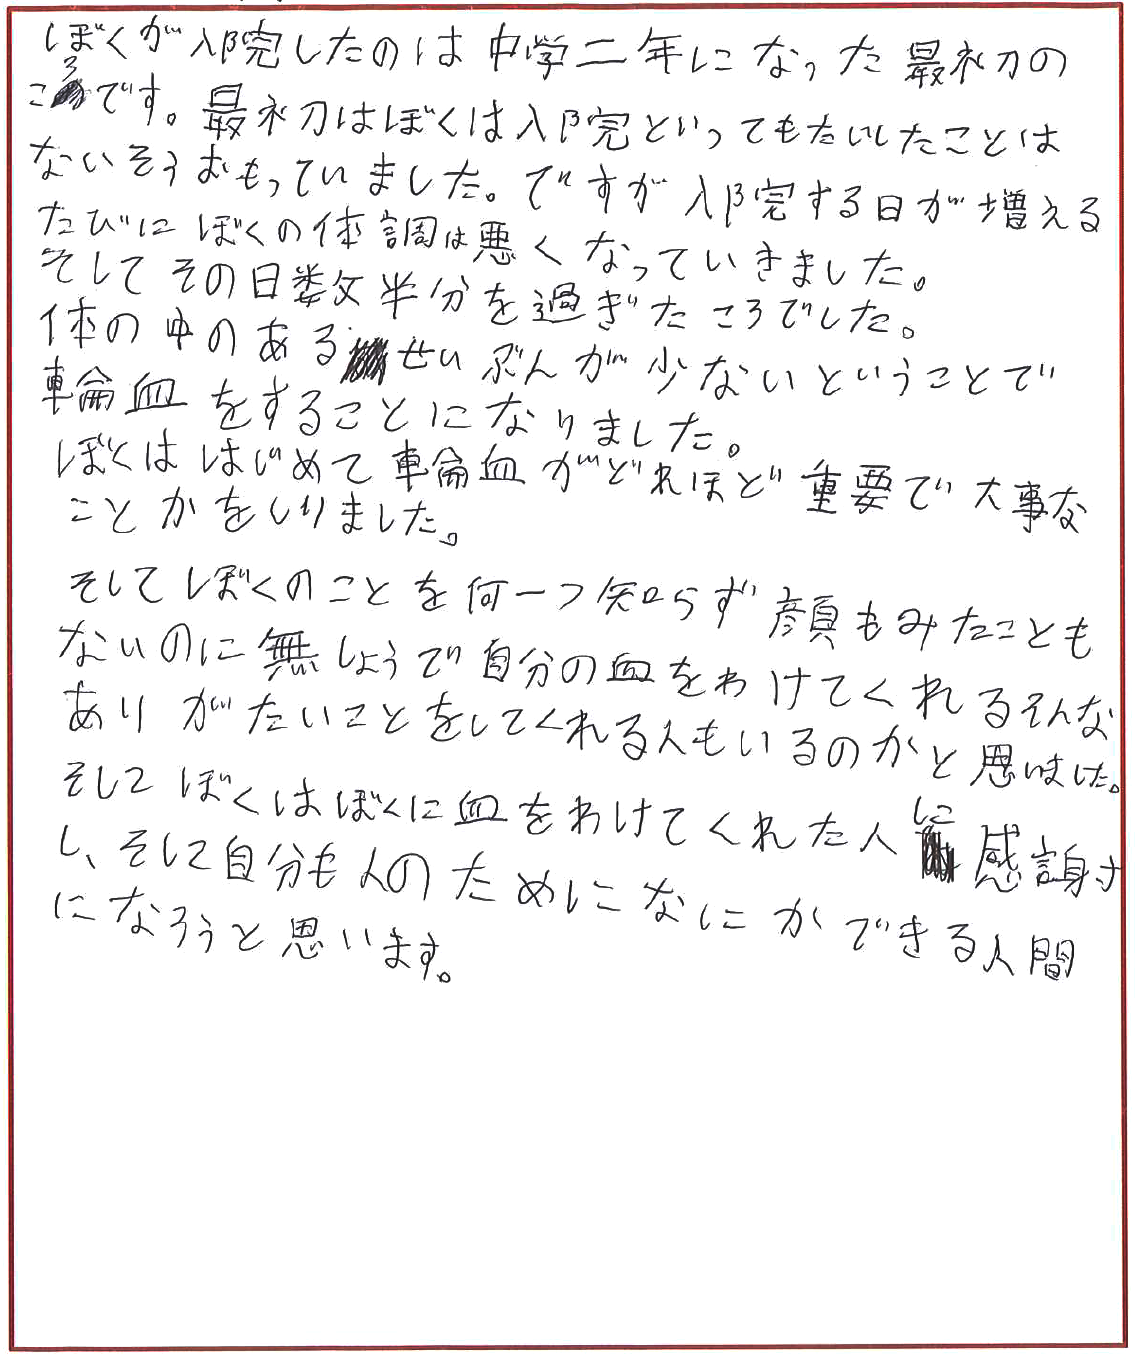 ぼくが入院したのは中学二年になった最初の
ころです。最初はぼくは入院といってもたいしたことは
ないそうおもっていました。ですが入院する日が増える
たびにぼくの体調は悪くなっていきました。
そしてその日数半分を過ぎたころでした。
体の中のあるせいぶんが少ないということで
輸血をすることになりました。
ぼくははじめて輸血がどれほど重要で大事な
ことかをしりました。
そしてぼくのことを何一つ知らず顔もみたことも
ないのに無しょうで自分の血をわけてくれるそんな
ありがたいことをしてくれる人もいるのかと思いました。
そしてぼくはぼくに血をわけてくれた人に感謝
し、そして自分も人のためになにかができる人間
になろうと思います。